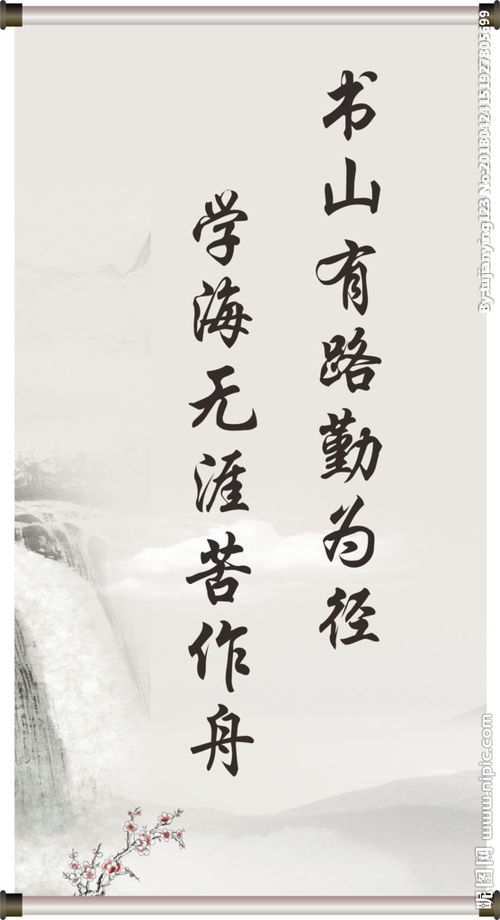 书山有路勤为径
学海无涯苦作舟
By:tujianying123 No:201804241151927805699
昵图网 www.nipic.com